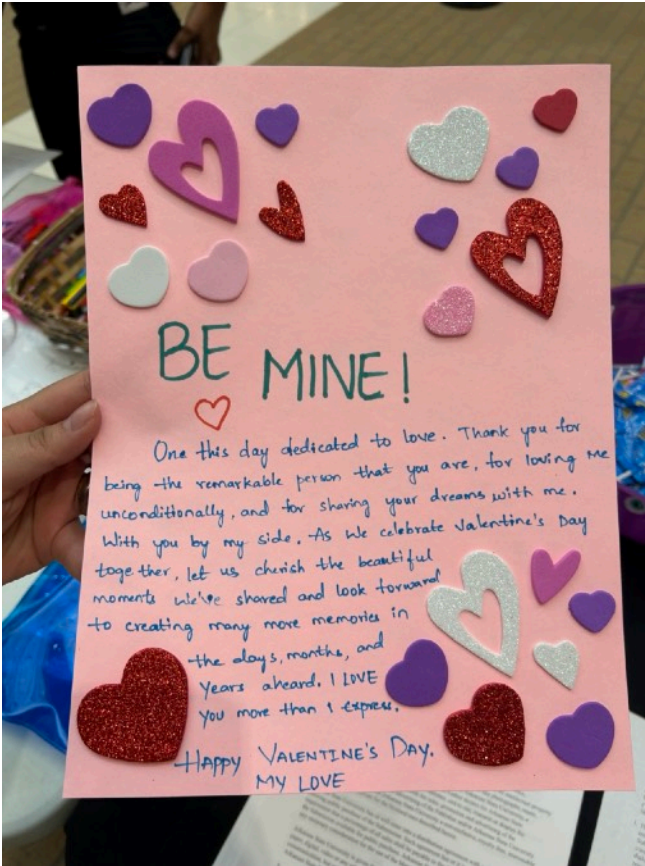 BE MINE!
One this day dedicated to love. Thank you for
being the remarkable person that you are, for loving me
unconditionally, and for sharing your dreams with me.
With you by my side. As we celebrate Valentine's Day
together, let us cherish the beautiful
moments We've shared and look forward
to creating many more memories in
the days, months, and
years aheard. I LOVE
you more than I express.
HAPPY VALENTINE'S DAY.
MY LOVE